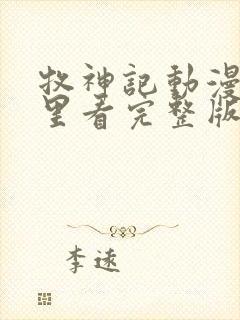 牧神記動漫
里看完整版
李逺